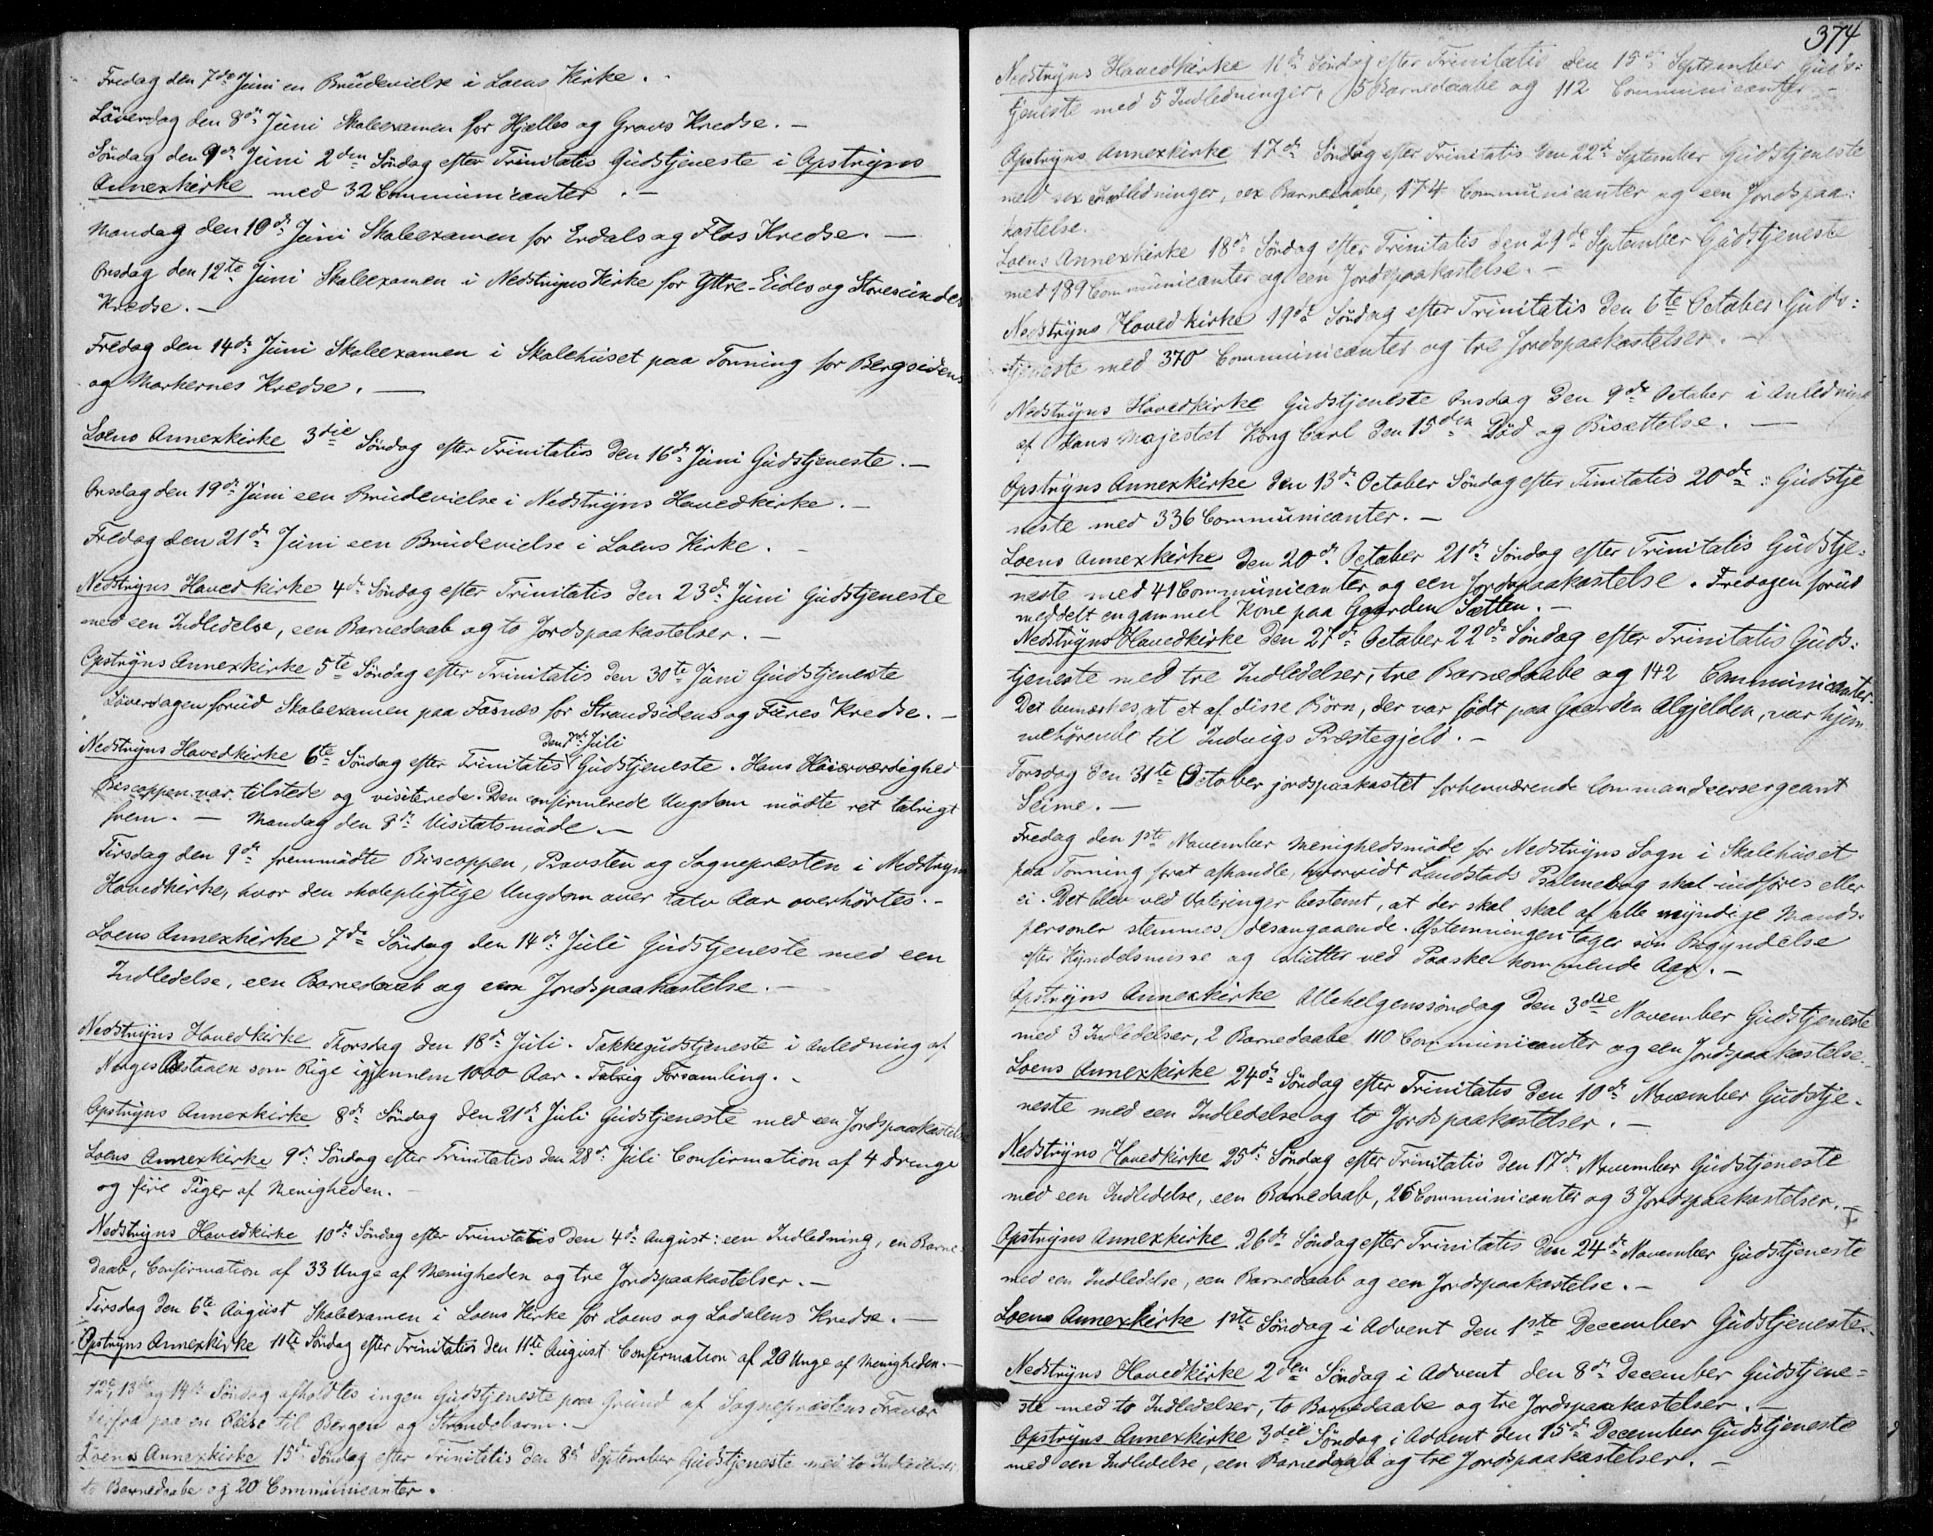 Fredag den 7de Juni en Brudevielse i Loens Kirke.
Löverdag den 8de Juni Skoleexamen for Hjelles og Gravs Kredse. —
Söndag den 9de Juni 2den Söndag efter Trinitatis Gudstjeneste i Opstryns
Annexkirke med 32 Communicanter. —
Mandag den 10de Juni Skoleexamen for Erdals og Flos Kredse. —
Onsdag den 12te Juni Skoleexamen i Nedstryns Kirke for Yttre-Eides og Storesundes
Kredse. —
Fredag den 14de Juni Skoleexamen i Skolehuset paa Tonning for Bergsidens
og Markernes Kredse. —
Loens Annexkirke 3die Söndag efter Trinitatis den 16de Juni Gudstjeneste. —
Onsdag den 19de Juni een Brudevielse i Nedstryns Hovedkirke. —
Fredag den 21de Juni een Brudevielse i Loens Kirke. —
Nedstryns Hovedkirke 4de Söndag efter Trinitatis den 23de Juni Gudstjeneste
med een Indledelse, een Barnedaab og to Jordspaakastelser. —
Opstryns Annexkirke 5te Söndag efter Trinitatis den 30te Juni Gudstjeneste
Löverdagen forud Skoleexamen paa Fosnes for Strandsidens og Fieres Kredse. —
den 7de Juli
Nedstryns Hovedkirke 6te Söndag efter Trinitatis Gudstjeneste. Hans Höiærværdighed
Biscoppen var tilstede og visiterede. Den confirmerede Ungdom mödte ret talrigt
frem. — Mandag den 8de Visitatsmöde. —
Tirsdag den 9de fremmödte Biscoppen, Provsten og Sognepræsten i Nedstryns
Hovedkirke, hvor den skolepligtige Ungdom over tolv Aar overhörtes. —
Loens Annexkirke 7de Söndag den 14de Juli Gudstjeneste med een
Indledelse, een Barnedaab og een Jordspaakastelse. —
Nedstryns Hovedkirke Thorsdag den 18de Juli. Takkegudstjeneste i Anledning af
Norges Bestaaen som Rige igjennem 1000 Aar. Talrig Forsamling. —
Opstryns Annexkirke 8de Söndag den 21de Juli Gudstjeneste med een Jordspaakastelse
Loens Annexkirke 9de Söndag efter Trinitatis den 28de Juli Confirmation af 4 Drenge
og fire Piger af Menigheden. —
Nedstryns Hovedkirke 10de Söndag efter Trinitatis den 4de August: een Indledning, en Barne-
daab, Confirmation af 33 Unge af Menigheden og tre Jordspaakastelser. —
Tirsdag den 6te August Skoleexamen i Loens Kirke for Loens og Lodalens Kredse. —
Opstryns Annexkirke 11te Söndag efter Trinitatis den 11te August Confirmation af 20 Unge af Menigheden. —
12te, 13de og 14de Söndag afholdtes ingen Gudstjeneste paa Grund af Sognepræstens Fravær
herfra paa en Reise til Bergen og Strandebarm. —
Loens Annexkirke 15de Söndag efter Trinitatis den 8de September Gudstjeneste med to Indledelser,
to Barnedaabe og 20 Communicanter.
374
Nedstryns Hovedkirke 16de Söndag efter Trinitatis den 15de September Guds-
tjeneste med 5 Indledninger, 5 Barnedaabe og 112 Communicanter —
Opstryns Annexkirke 17de Söndag efter Trinitatis den 22de September Gudstjeneste
med sex Indledninger, sex Barnedaabe, 174 Communicanter og een Jordspaa-
kastelse.
Loens Annexkirke 18de Söndag efter Trinitatis den 29de September Gudstjeneste
med 189 Communicanter og een Jordspaakastelse. —
Nedstryns Hovedkirke 19de Söndag efter Trinitatis den 6te October Guds-
tjeneste med 370 Communicanter og tre Jordspaakastelser. —
Nedstryns Hovedkirke Gudstjeneste Onsdag den 9de October i Anledning
af Hans Majestæt Kong Carl den 15den Död og Bisættelse. —
Opstryns Annexkirke den 13de October Söndag efter Tinitatis 20de: Gudstje
neste med 336 Communicanter. —
Loens Annexkirke den 20de October 21de Söndag efter Trinitatis Gudstje-
neste med 41 Communicanter og een Jordspaakastelse. Fredagen forud
meddelt en gammel Kone paa Gaarden Sætten. —
Nedstryns Hovedkirke den 27de October 22de Söndag efter Trinitatis Guds-
tjeneste med tre Indledelser, tre Barnedaabe og 142 Communicanter.
Det bemærkes, at et af disse Börn, der var födt paa Gaarden Algjelden, var hjem
mehörende til Indvigs Præstegjeld. —
Torsdag den 31te October jordspaakastet forhenværende Commandeersergeant
Seime. —
Fredag den 1ste November Menighedsmöde for Nedstryns Sogn i Skolehuset
paa Tonning for at afhandle, hvorvidt Landstads Psalmebog skal indföres eller
ei. Det blev ved Voteringer bestemt, at der skal skal af alle myndige Mands-
personer stemmes desangaaende. Afstemningen tager sin Begyndelse
efter Kyndelsmisse og slutter ved Paaske kommende Aar. —
Opstryns Annexkirke Allehelgenssöndag den 3die November Gudstjeneste
med 3 Indledelser, 2 Barnedaabe 110 Communicanter og een Jordspaakastelse.
Loens Annexkirke 24de Söndag efter Trinitatis den 10de November Gudstje-
neste med een Indledelse og to Jordspaakastelser. —
Nedstryns Hovedkirke 25de Söndag efter Trinitatis den 17de November Gudstjeneste
med een Indledelse, een Barnedaab, 26 Communicanter og 3 Jordspaakastelser. —
Opstryns Annexkirke 26de Söndag efter Trinitatis den 24de November Gudstjeneste
med een Indledelse, een Barnedaab og een Jordspaakastelse. —
Loens Annexkirke 1ste Söndag i Advent den 1ste December Gudstjeneste. —
Nedstryns Hovedkirke 2den Söndag i Advent den 8de December Gudstjene-
ste med to Indledelser, to Barnedaabe og tre Jordspaakastelser. —
Opstryns Annexkirke 3die Söndag i Advent den 15de December Gudstjeneste
med een Indledelse, een Barnedaab og tre Jordspaakastelser. —